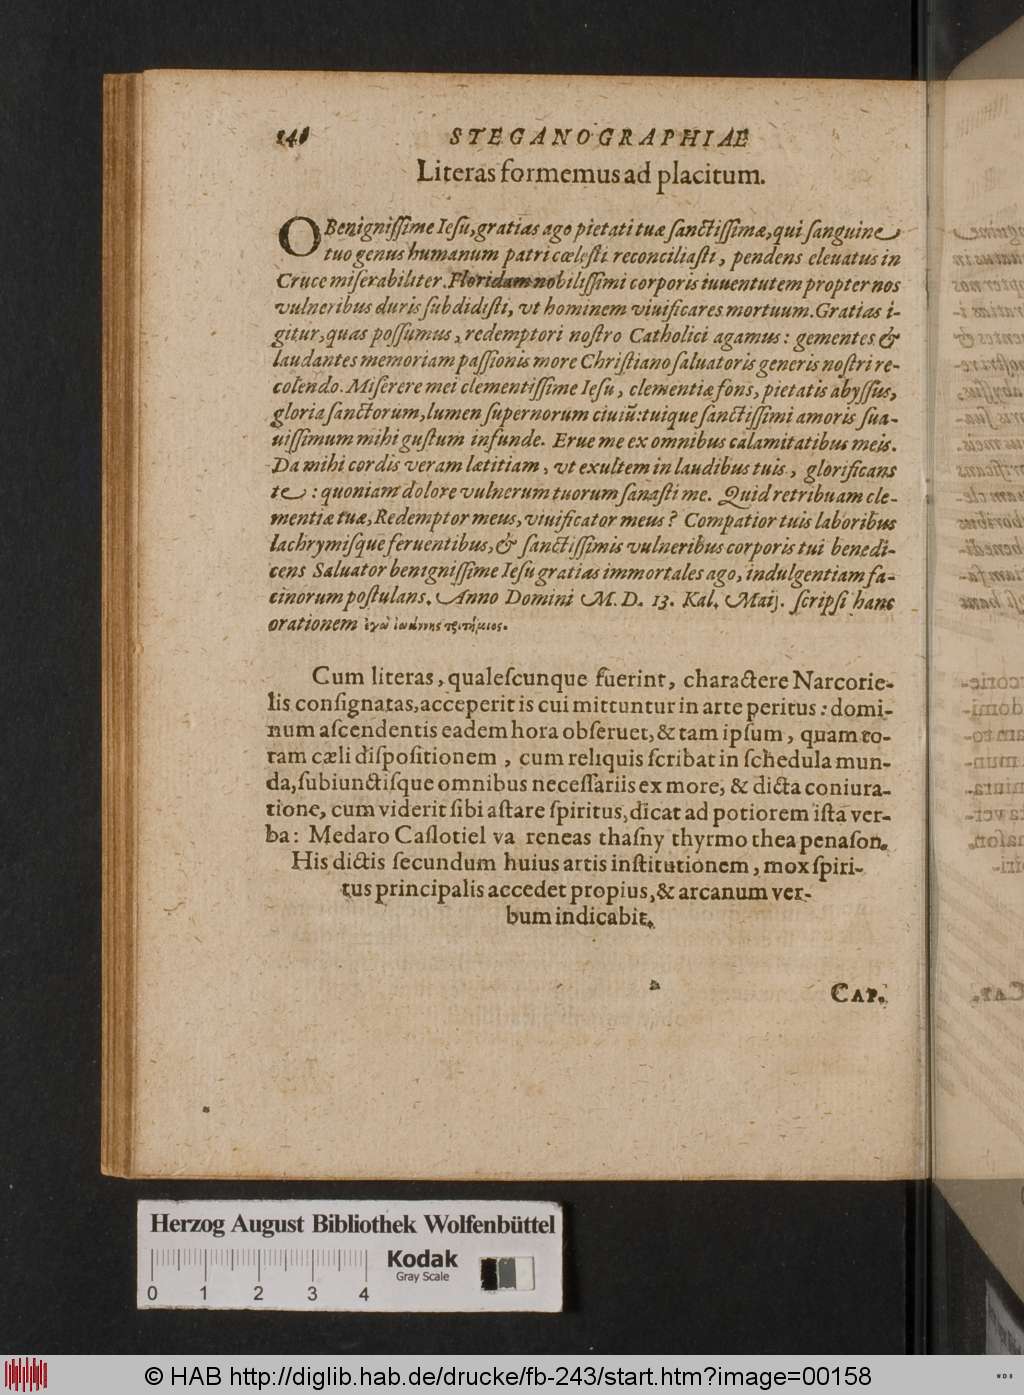 STEGANOGRAPHIAE
Literas formemus ad placitum.
O Benigniſſime Ieſu, gratias ago pietati tuæ ſanctiſſimæ, qui ſanguine
tuo genus humanum patri cœleſti reconciliaſti, pendens eleuatus in
Cruce miſerabiliter. Floridam nobiliſſimi corporis iuuentutem propter nos
vulneribus duris ſubdidiſti, vt hominem viuificares mortuum. Gratias i-
gitur, quas poſſumus, redemptori noſtro Catholici agamus: gementes &
laudantes memoriam paſſionis more Chriſtiano ſaluatoris generis noſtri re-
colendo. Miſerere mei clementiſſime Ieſu, clementiæ fons, pietatis abyſſus,
gloria ſanctorum, lumen ſupernorum ciuiũ: tuique ſanctiſſimi amoris ſua-
uiſſimum mihi guſtum infunde. Erue me ex omnibus calamitatibus meis.
Da mihi cordis veram lætitiam, vt exultem in laudibus tuis, glorificans
te: quoniam dolore vulnerum tuorum ſanaſti me. Quid retribuam cle-
mentiæ tuæ, Redemptor meus, viuificator meus? Compatior tuis laboribus
lachrymiſque feruentibus, & ſanctiſſimis vulneribus corporis tui benedi-
cens Saluator benigniſſime Ieſu gratias immortales ago, indulgentiam fa-
cinorum poſtulans. Anno Domini M. D. 13. Kal. Maij. ſcripſi hanc
orationem ἐγὼ ἰωάννης τριτήμιος.
Cum literas, qualeſcunque fuerint, charactere Narcorie-
lis conſignatas, acceperit is cui mittuntur in arte peritus: domi-
num aſcendentis eadem hora obſeruet, & tam ipſum, quam to-
tam cæli diſpoſitionem, cum reliquis ſcribat in ſchedula mun-
da, ſubiunctiſque omnibus neceſſariis ex more, & dicta coniura-
tione, cum viderit ſibi aſtare ſpiritus, dicat ad potiorem iſta ver-
ba: Medaro Caſlotiel va reneas thaſny thyrmo thea penaſon.
His dictis ſecundum huius artis inſtitutionem, mox ſpiri-
tus principalis accedet propius, & arcanum ver-
bum indicabit.
CAP.
Herzog August Bibliothek Wolfenbüttel
Kodak
Gray Scale
0 1 2 3 4
© HAB http://diglib.hab.de/drucke/fb-243/start.htm?image=00158